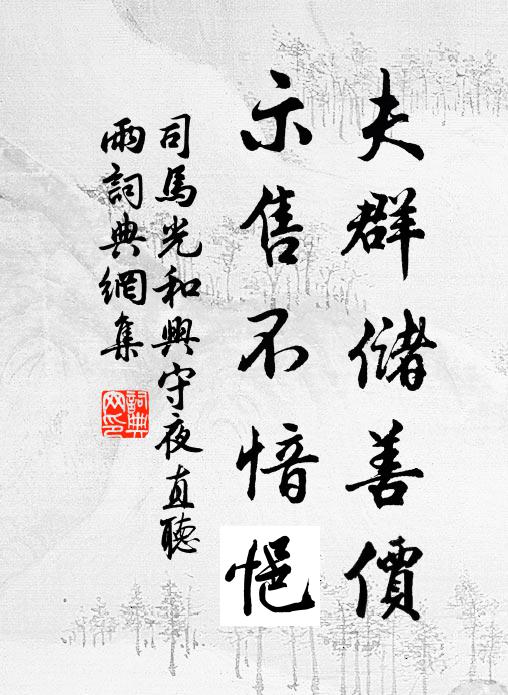 夫群儲善價
示售不愔悒
司馬光和興守夜直聽
雨詞典網集
詞典网印